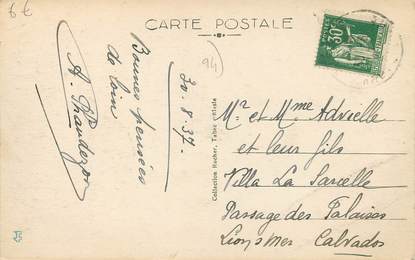 6€
CARTE POSTALE
30c
94
20.8.37.
Bonnes pensées
de loin
Collection Rocher, Tabac
Mr et Mme Advielle
et leur fils
Villa La Sarcelle
Passage des Falaises
Lion s/mer Calvados